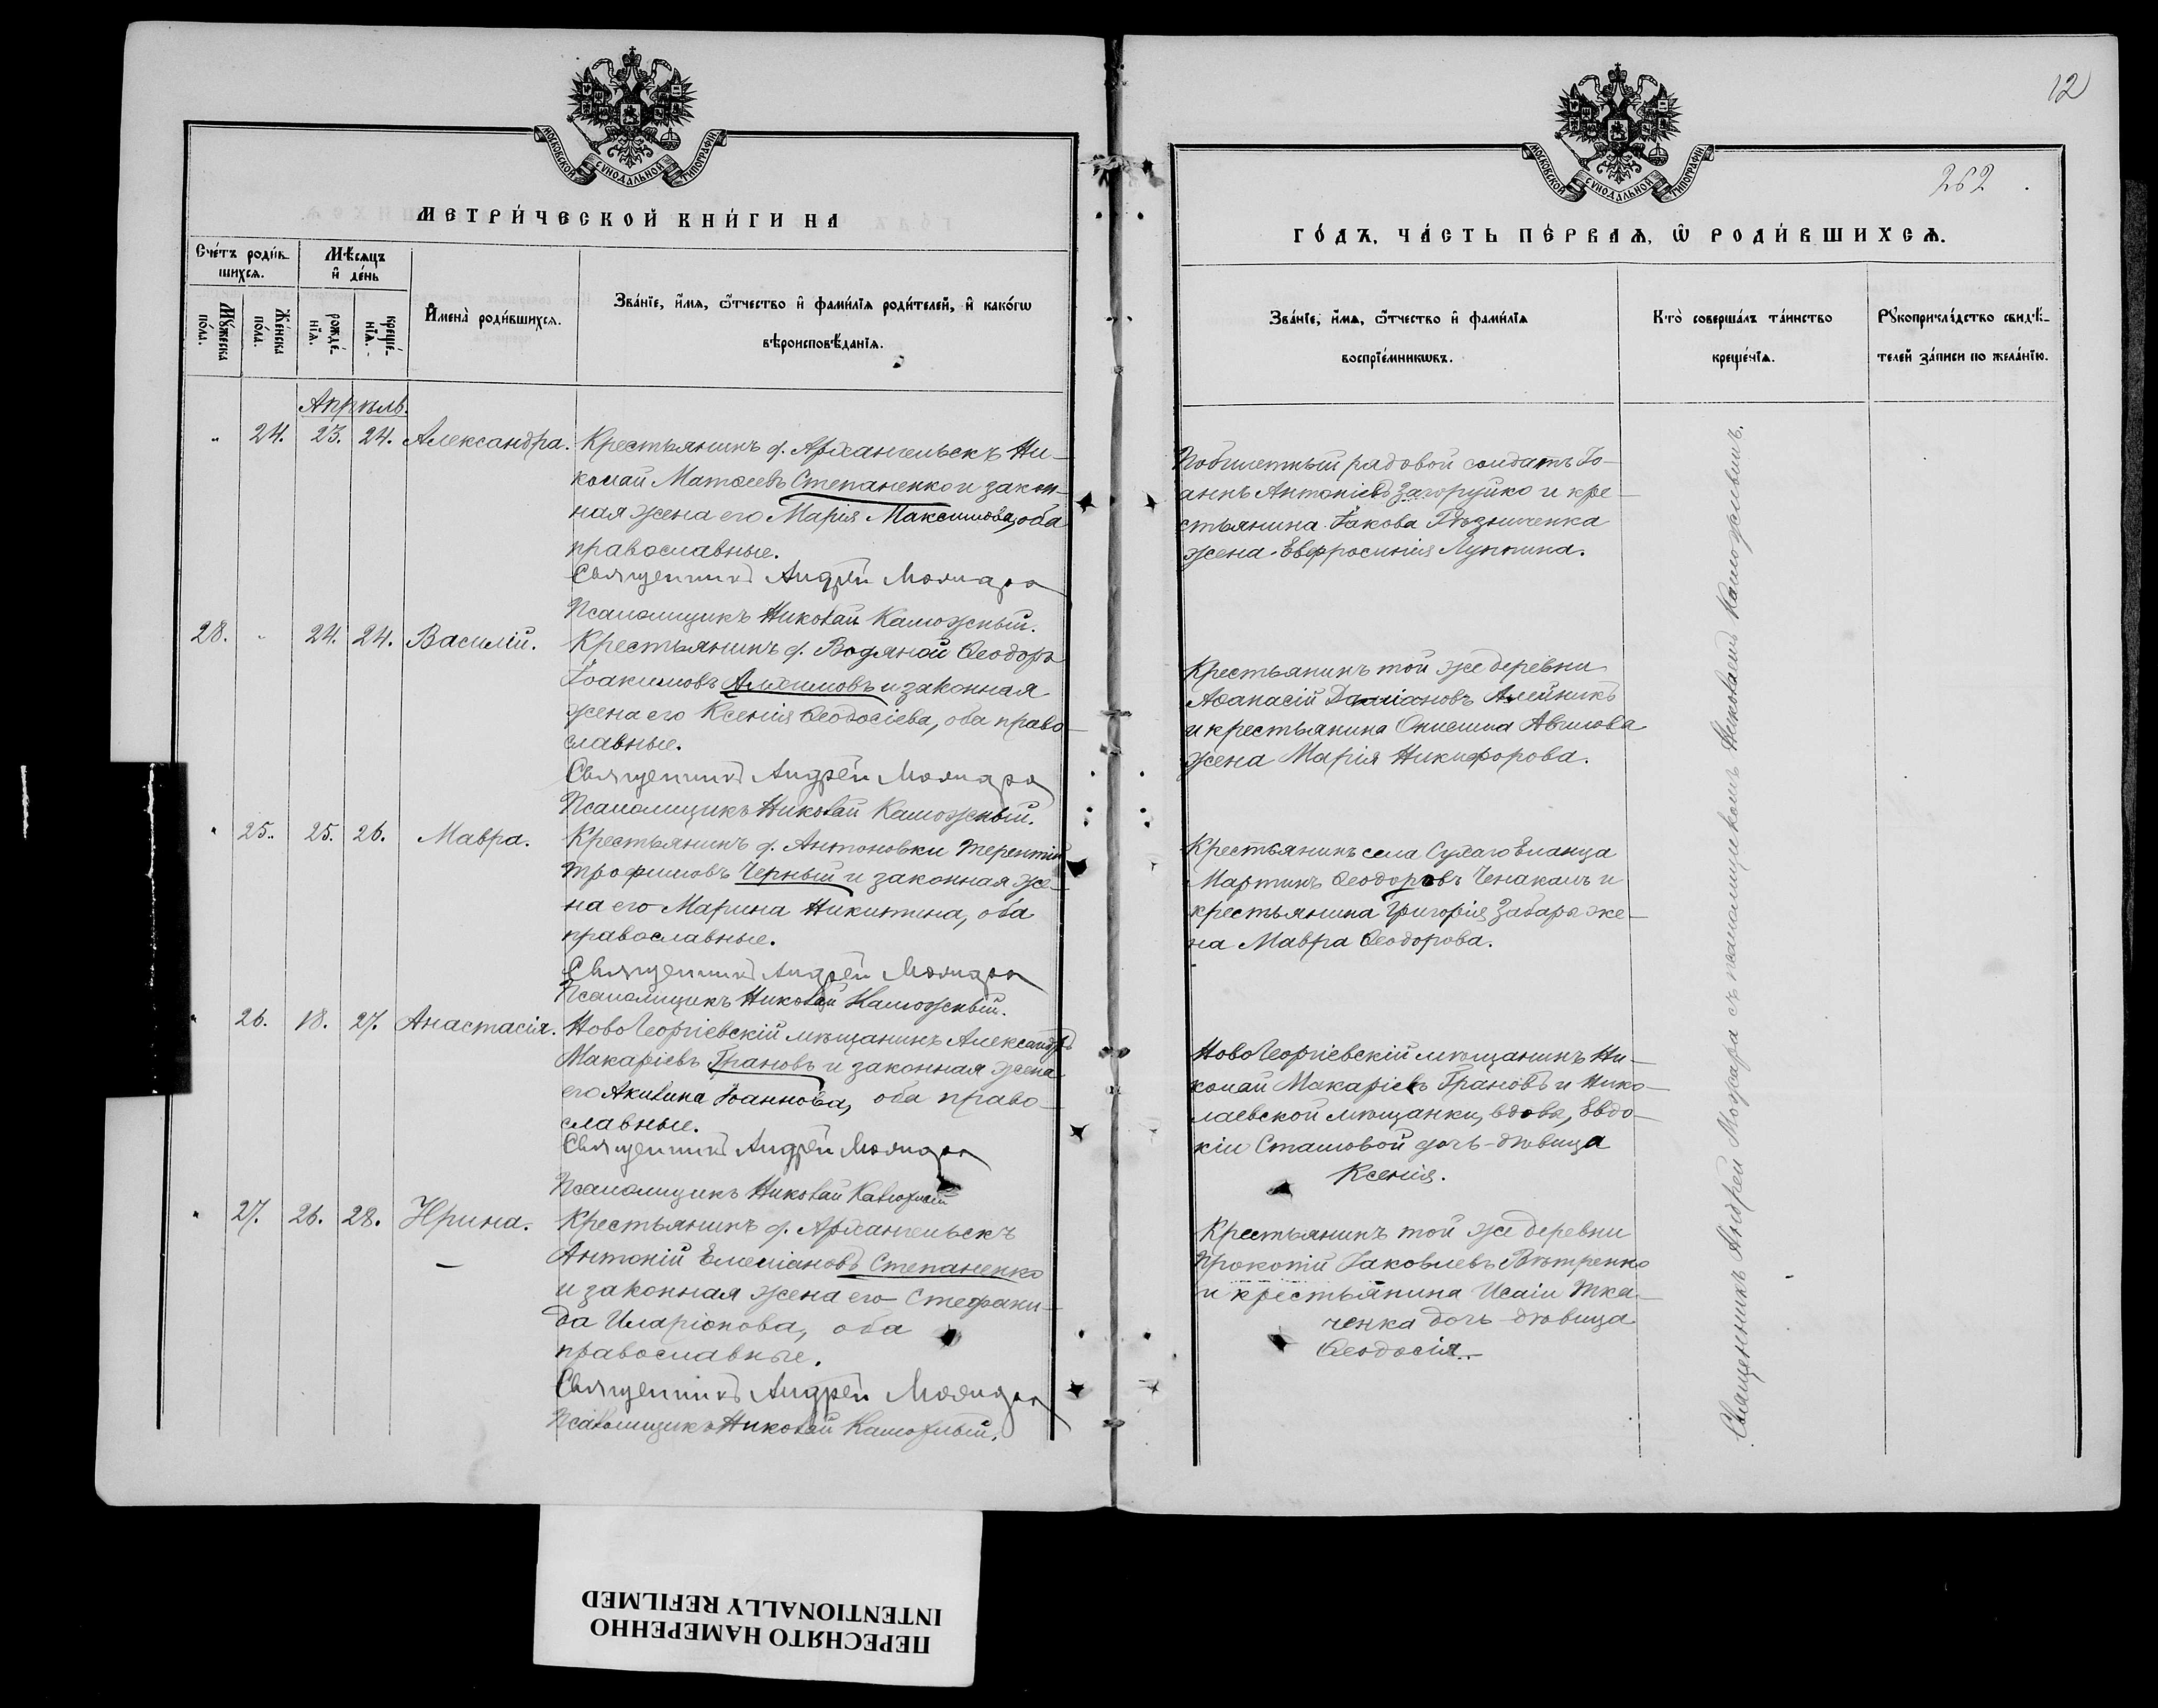 МОСКОВСКОЙ СѴНОДАЛЬНОЙ ТИПОГРАФІИ
МЕТРИ́ЧЕСКОЙ КНИ́ГИ НА
Сче́тъ роди́в-
шихся.
Мѣ́сяцъ
и҆ де́нь
Мꙋ́жеска
по́ла.
Же́нска
по́ла.
рожде́-
нїѧ.
креще́-
нїѧ.
И҆мена̀ роди́вшихсѧ.
Зва́нїе, и҆́мѧ, ѻ҆́тчество и҆ фами́лїѧ роди́телей, и҆ како́гѡ
вѣроисповѣ́данїѧ.
Апрѣль.
„ 24. 23. 24. Александра. Крестьянинъ д. Архангельскъ Ни-
колай Матѳеевъ Степаненко и закон-
ная жена его Марія Максимова, оба
православные.
Священникъ Андрей
Псаломщикъ Николай Калюжный.
28. „ 24. 24. Василій. Крестьянинъ д. Водяной Ѳеодоръ
Іоакимовъ и законная
жена его Ксенія Ѳеодосіева, оба право-
славные.
Священникъ Андрей
Псаломщикъ Николай Калюжный.
„ 25. 25. 26. Мавра. Крестьянинъ д. Антоновки Терентій
Трофимовъ Черный и законная же-
на его Марина Никитина, оба
православные.
Священникъ Андрей
Псаломщикъ Николай Калюжный.
„ 26. 18. 27. Анастасія. НовоГеоргіевскій мѣщанинъ Александръ
Макаріевъ Грановъ и законная жена
его Акилина Іоаннова, оба право-
славные.
Священникъ Андрей
Псаломщикъ Николай Калюжный
„ 27. 26. 28. Ирина. Крестьянинъ д. Архангельскъ
Антоній Емеліановъ Степаненко
и законная жена его Стефани-
да Иларіонова, оба
православные.
Священникъ Андрей
Псаломщикъ Николай Калюжный.
12
262
МОСКОВСКОЙ СѴНОДАЛЬНОЙ ТИПОГРАФІИ
ГО́ДЪ, ЧА́СТЬ ПЕ́РВАѦ, Ѡ҆ РОДИ́ВШИХСѦ.
Зва́нїе, и҆́мѧ, ѻ҆́тчество и҆ фами́лїѧ
воспрїе́мникѡвъ.
Кто̀ соверша́лъ та́инство
креще́нїѧ.
Рꙋкоприкла́дство свидѣ́-
телей за́писи по жела́нїю.
Побилетный рядовой солдатъ Іо-
аннъ Антоніевъ Загоруйко и кре-
стьянина Іакова
жена Евфросинія Лукина.
Крестьянинъ той же деревни
Аѳанасій Даміановъ Алейникъ
и крестьянина Авилова
жена Марія Никифорова.
Крестьянинъ села Сухаго Еланца
Мартинъ Ѳеодоровъ Чекаль и
крестьянина Григорія Забара же-
на Мавра Ѳеодорова.
НовоГеоргіевскій мѣщанинъ Ни-
колай Макаріевъ Грановъ и Нико-
лаевской мѣщанки, вдовы, Евдо-
кіи Сташовой дочь-дѣвица
Ксенія.
Крестьянинъ той же деревни
Прокопій Іаковлевъ Вѣтренко
и крестьянина Исаіи Тка-
ченка дочь-дѣвица
Ѳеодосія.
Священникъ Андрей съ псаломщикомъ Николаемъ Калюжнымъ.
ПЕРЕСНЯТО НАМЕРЕННО
INTENTIONALLY REFILMED